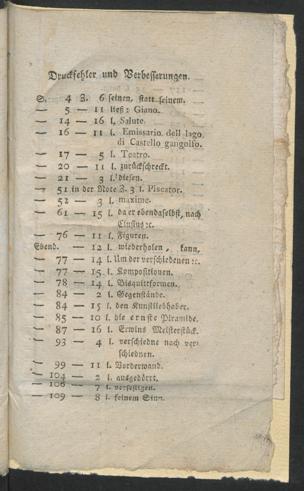 Druckfehler und Verbesserungen.
S. 4 Z. 6 seinen, statt seinem.
— 5 — 11 ließ: Giano.
— 14 — 16 l. Salute.
— 16 — 11 l. Emissario dell lago
di Castello gangolfo.
— 17 — 5 l. Teatro.
— 20 — 11 l. zurückschreckt.
— 21 — 3 l. diesen.
— 51 in der Note Z. 3 l. Piscator.
— 52 — 3 l. maxime.
— 61 — 15 l. da er ebendaselbst, nach
Clusius ꝛc.
— 76 — 11 l. Figuren.
Ebend. — 12 l. wiederholen, kann,
— 77 — 14 l. Um der verschiedenen ꝛc.
— 77 — 15 l. Kompositionen.
— 78 — 14 l. Bisquitformen.
— 84 — 2 l. Gegenstände.
— 84 — 15 l. den Kunstliebhaber.
— 85 — 10 l. die ernste Piramide.
— 87 — 16 l. Erwins Meisterstück.
— 93 — 4 l. verschiedne nach ver-
schiednen.
— 99 — 11 l. Vorderwand.
— 104 — 2 l. ausgedörrt.
— 106 — 7 l.
— 109 — 8 l. seinem Sinn.